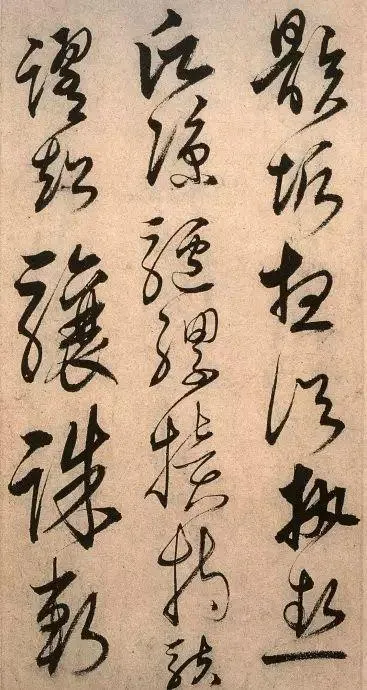 骸垢想浴執熱
願涼驢騾犢特駭
躍超驤誅斬